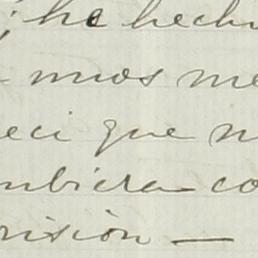 ; he hech
mios me
eci que n
ubiera co
rision —